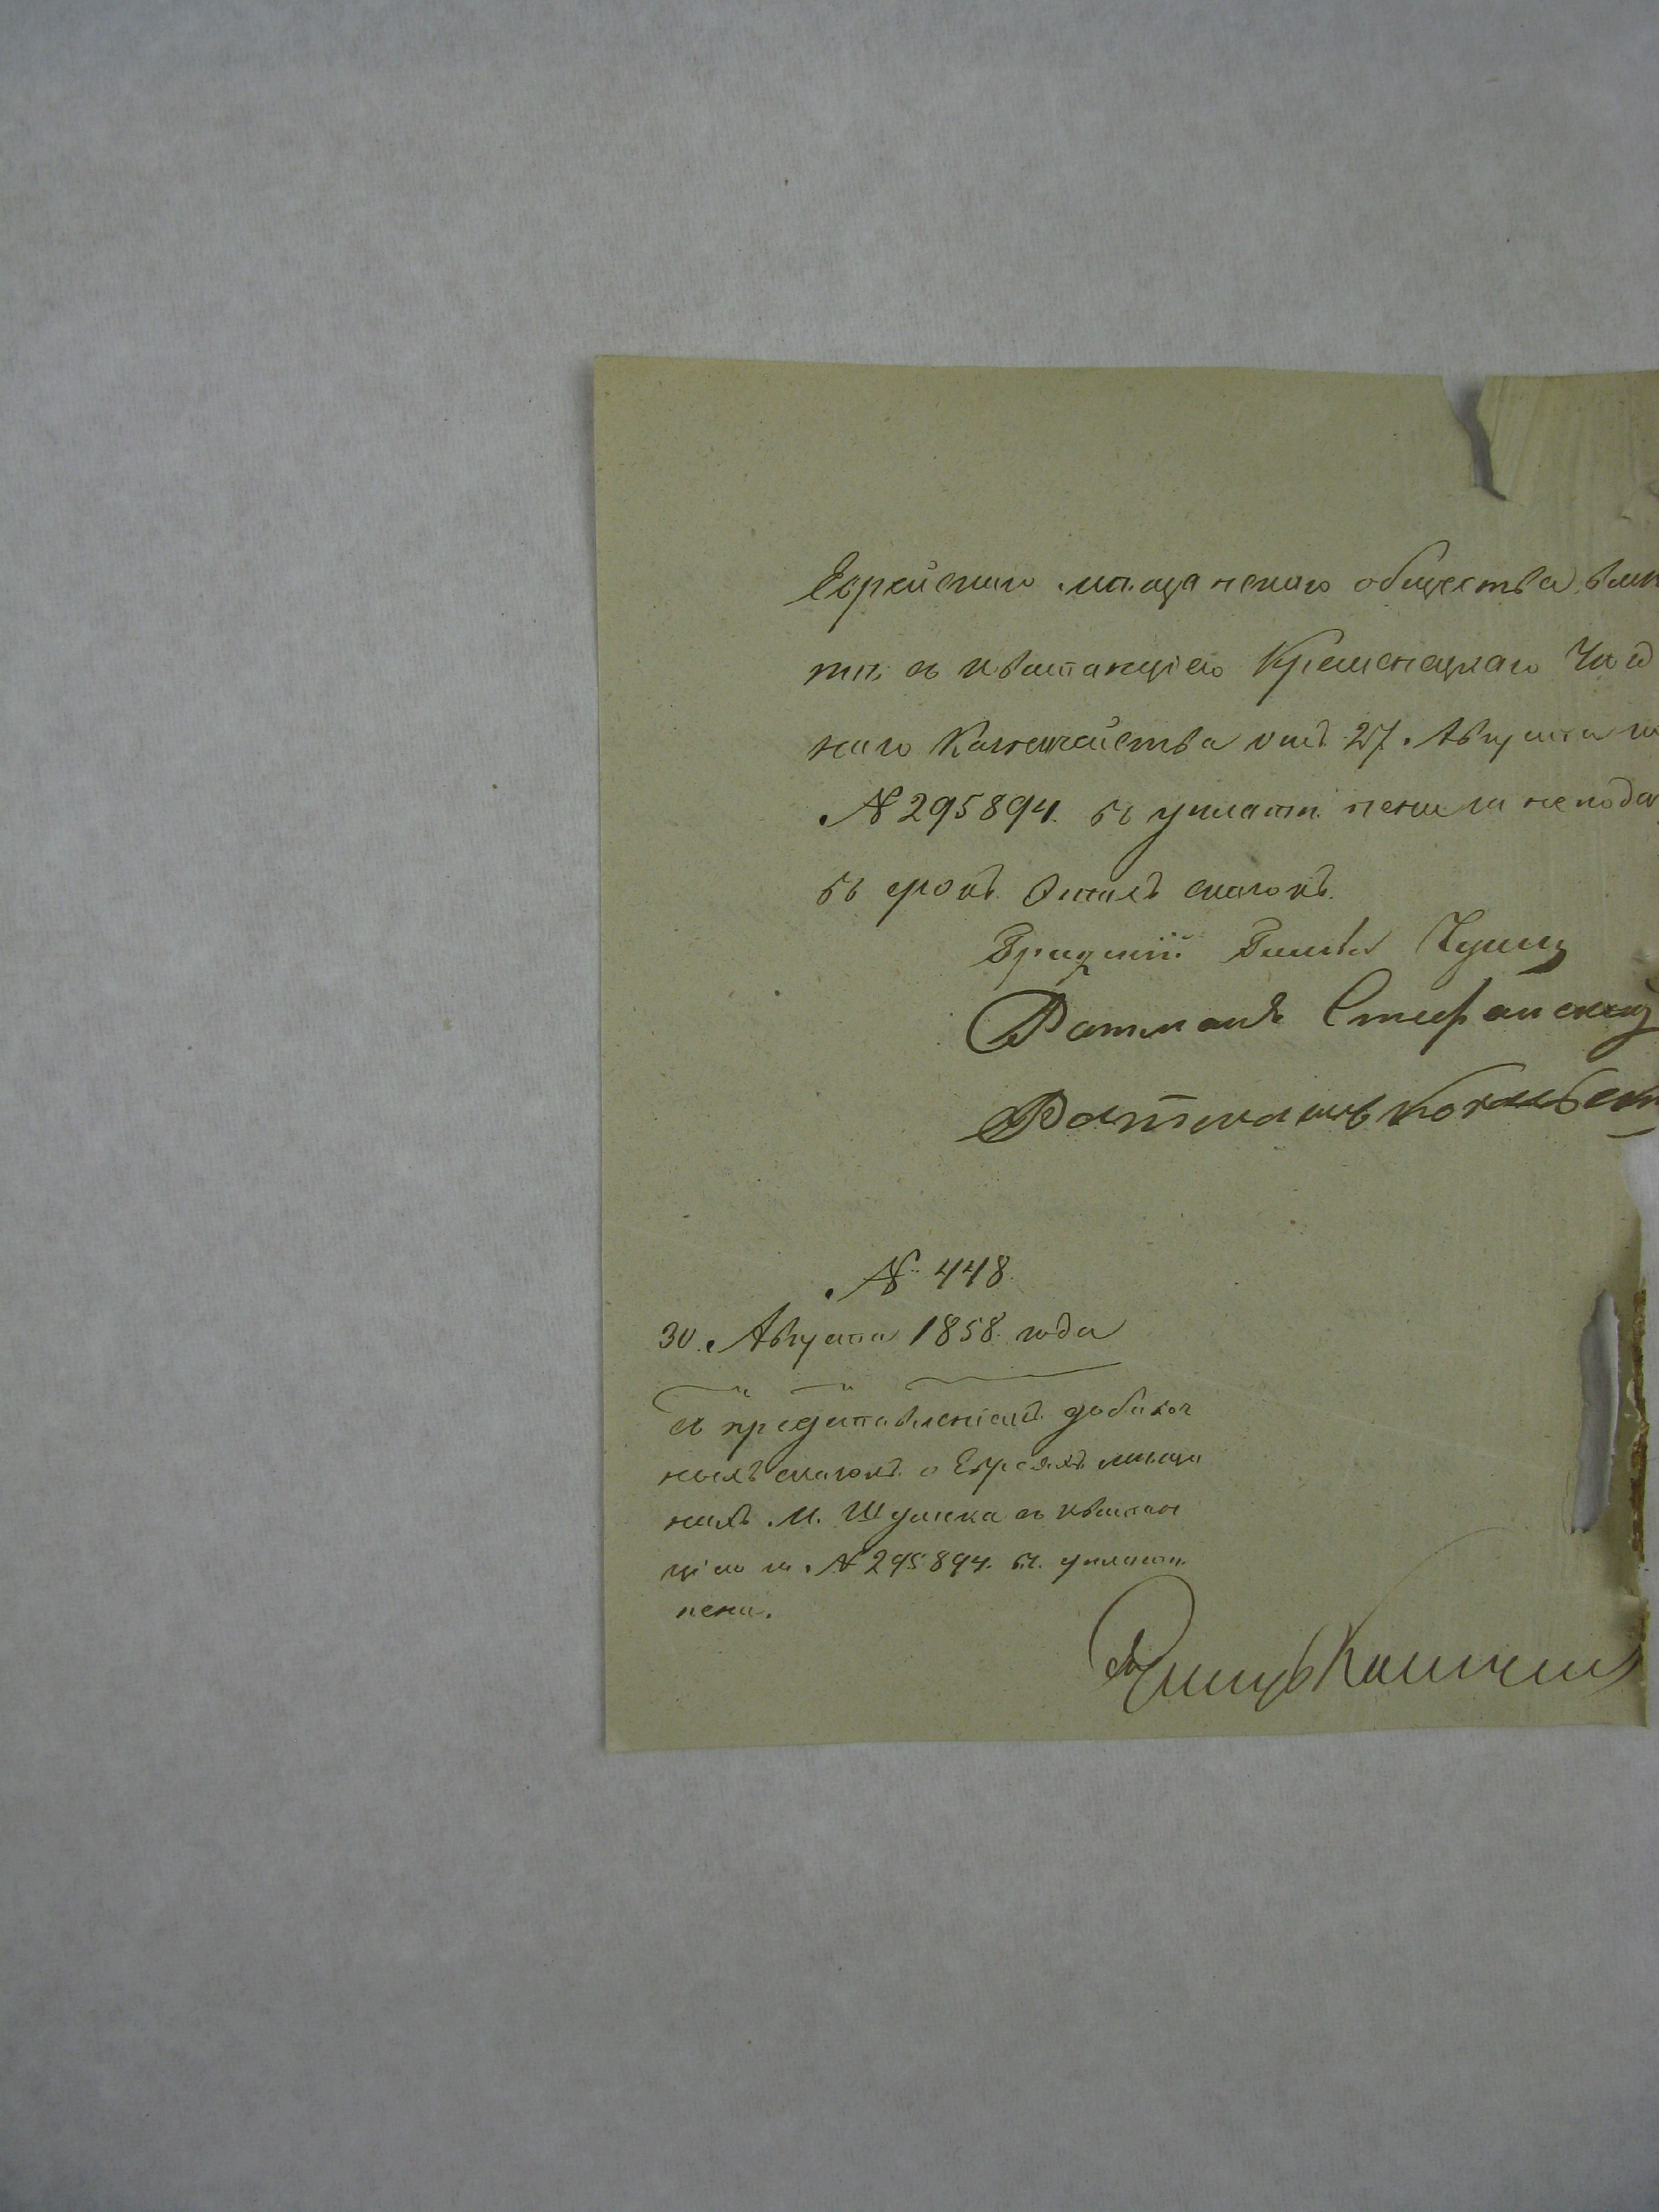 Еврейскаго мѣщанскаго общества вмѣ
стѣ съ квитанціею Кременецкаго Уѣзд
наго Казначейства отъ 27. Августа за
№ 295894. въ уплатѣ пени за неподачу
въ срокъ сказокъ.
Ратманъ Стефанский
Ратманъ
№ 448.
30. Августа 1858. года
Съ представленіемъ добавоч
ныхъ сказокъ о Евреяхъ мѣща
нахъ М. Шумска съ квитан
ціею за № 295894. въ уплатѣ
пени.